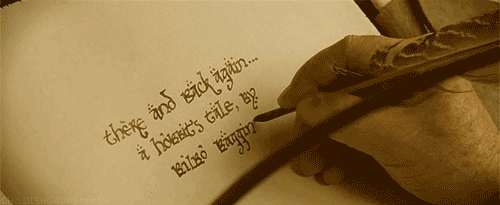 there and back again...
a hobbit's tale, by
bilbo baggin